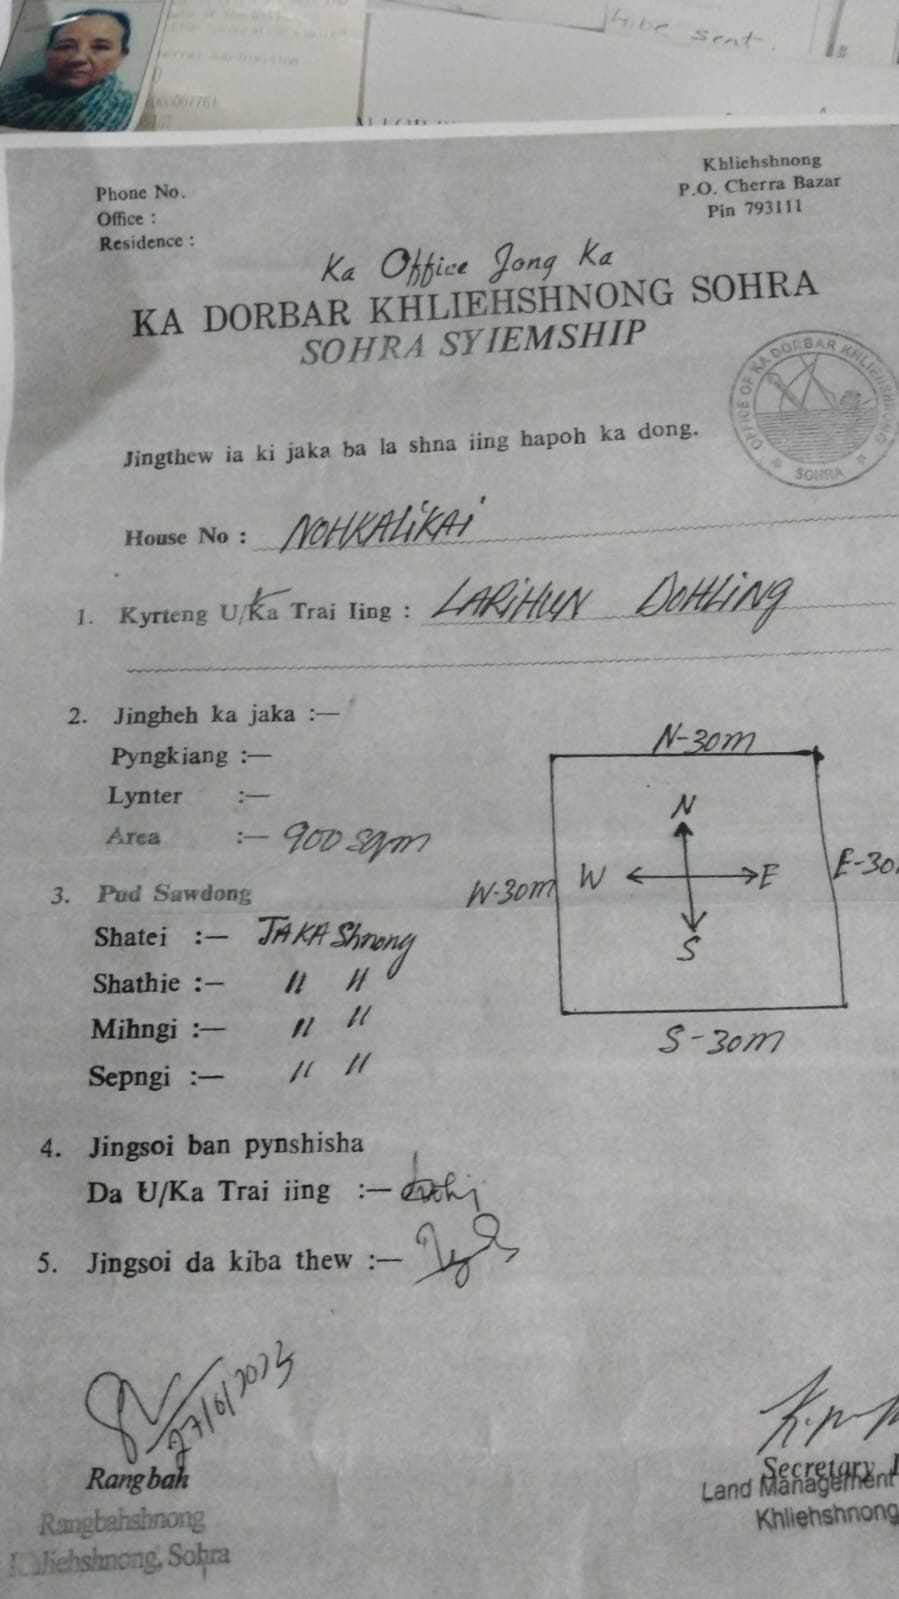 to be sent.
Phone No.
Office :
Residence :
Khliehshnong
P.O. Cherra Bazar
Pin 793111
Ka Office Jong Ka
KA DORBAR KHLIEHSHNONG SOHRA
SOHRA SYIEMSHIP
OFFICE OF KA DORBAR KHLIEHSHNONG
SOHRA
Jingthew ia ki jaka ba la shna iing hapoh ka dong.
House No : NOHKALIKAI
1. Kyrteng U/Ka Trai Iing : LARIHUN DOHLING
2. Jingheh ka jaka :—
Pyngkiang :—
Lynter :—
Area :— 900 sqm
N-30m
N
W-30m W E E-30
S
S-30m
3. Pud Sawdong
Shatei :— JAKA Shnong
Shathie :— " "
Mihngi :— " "
Sepngi :— " "
4. Jingsoi ban pynshisha
Da U/Ka Trai iing :—
5. Jingsoi da kiba thew :—
27/6/2023
Rangbah
Rangbahshnong
Khliehshnong, Sohra
Secretary
Land Management
Khliehshnong